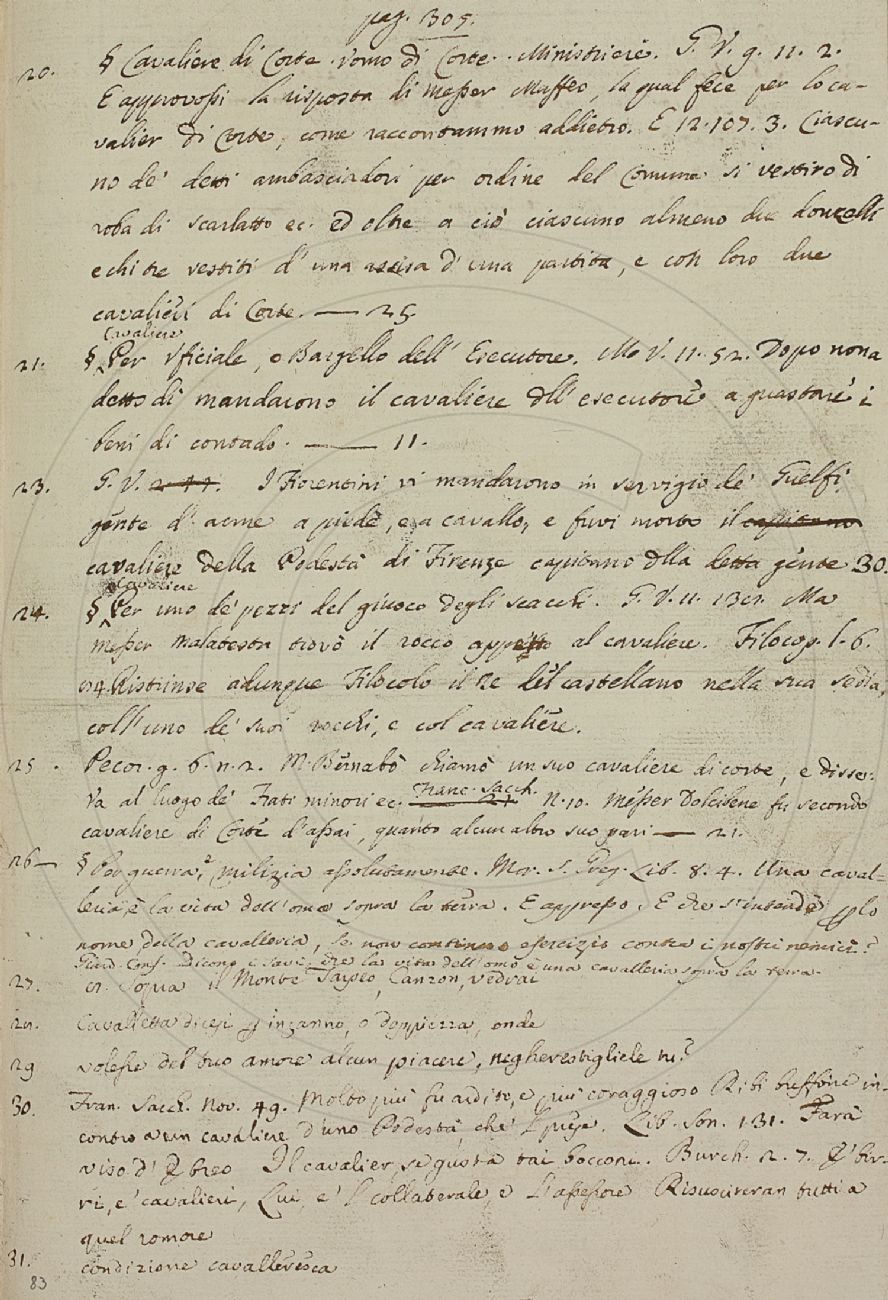 pag. 305.
20. § Cavaliere di Corte. Uomo di Corte. Ministriere. G. V. 9. 11. 2.
E approvossi la risposta di messer Maffeo, la qual fece per lo ca-
valier di Corte, come raccontammo addietro. E 12. 107. 3. Ciascu-
no de' detti ambasciadori per ordine del Comune si vestiro di
roba di scarlatto ec. ed oltre a ciò ciascuno almeno due donzelli
e chi tre vestiti d'una assisa d'una partita, e con loro due
cavalieri di Corte. — 25.
Cavaliere
21. § Per Uficiale, o Bargello dell' Esecutore. M. V. 11. 52. Dopo nona
detto dì mandarono il cavaliere dell' esecutore a guastare i
beni di contado. — 11.
23. G. V. 2. 44. I Fiorentini vi mandarono in servigio de' Guelfi
gente d' arme a piede, e a cavallo, e fuvi morto il capitano
cavaliere della Podestà di Firenze capitano della detta gente 30.
Cavaliere
24. § Per uno de' pezzi del giuoco degli scacchi. G. V. 11. Ma
messer Malatesta trovò il rocco appetto al cavaliere. Filocop. l. 6.
94. Ristrinse adunque Filocolo il Re del castellano nella sua sedia,
coll' uno de' suoi rocchi, e col cavaliere.
25. Pecor. g. 6. n. 2. M. Bernabò chiamò un suo cavaliere di corte, e disse:
Va al luogo de' Frati minori ec. Franc. Sacch. N. 10. Messer Dolcibene fu secondo
cavaliere di Corte d'assai, quanto alcun altro suo pari — 21.
26 — § Per guerra, milizia assolutamente. Mor. S. Greg. Lib. 8. 4. Una caval-
leria è la vita dell' omo sopra la terra. E appresso. E che s'intende per lo
nome della cavalleria, se non continuo esercizio contra i nostri nemici?
Giard. Cons. Dicono i savi, che la vita dell' omo è una cavalleria sopra la terra.
27. Sopra il Monte Canzon, vedrai
Cavalletta dicesi per inganno, o doppiezza, onde
29 volesse del tuo amore alcun piacere, negherestigliele tu?
30. Fran. Sacch. Nov. 49. Molto più fu ardito, e più coraggioso Ribi buffone in-
contro a un cavaliere d'uno Podestà, che 'l prese. Lib. Son. 131. Farà
viso d' Ebreo Il cavalier, se gusta tai bocconi. Burch. 2. 7. E' bir-
ri, e' cavalieri, Lui, e 'l collaterale, e l'assessore Risusciteran tutti a
quel romore
31. condizione cavalleresca
83